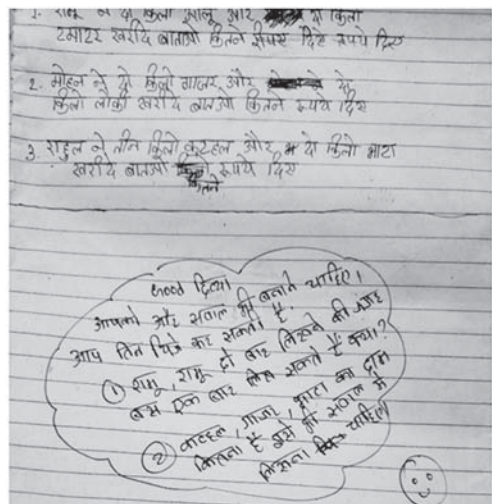 1. रामू ने दो किलो आलू और दो किलो
टमाटर खरीदे बाताओ कितने रुपए दिए रूपये दिए
2. मोहन ने दो किलो गाजर और दो
किलो लौकी खरीदे बाताओ कितने रूपये दिए
3. राहुल ने तीन किलो कटहल और दो किलो भाटा
खरीदे बाताओ रूपये दिए
कितने
Good दिव्या
आपको और सवाल भी बनाने चाहिए।
आप तिन चिजे कह सकती है
① रामू, रामू दो बार लिखने की जगह
बस एक बार लिख सकते हैं क्या?
② कटहल, गाजर, भाटा का दाम
कितना है इसे भी सवाल में
लिखना चाहिए।